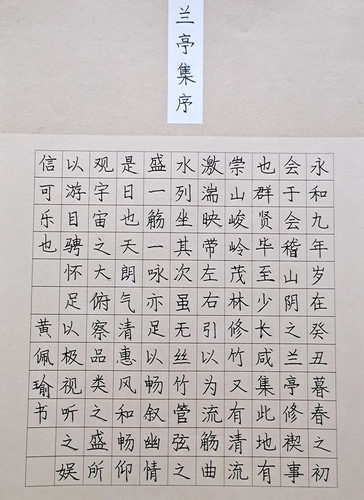 兰亭集序
永和九年岁在癸丑暮春之初
会于会稽山阴之兰亭修禊事
也群贤毕至少长咸集此地有
崇山峻岭茂林修竹又有清流
激湍映带左右引以为流觞曲
水列坐其次虽无丝竹管弦之
盛一觞一咏亦足以畅叙幽情
是日也天朗气清惠风和畅仰
观宇宙之大俯察品类之盛所
以游目骋怀足以极视听之娱
信可乐也 黄佩瑜书